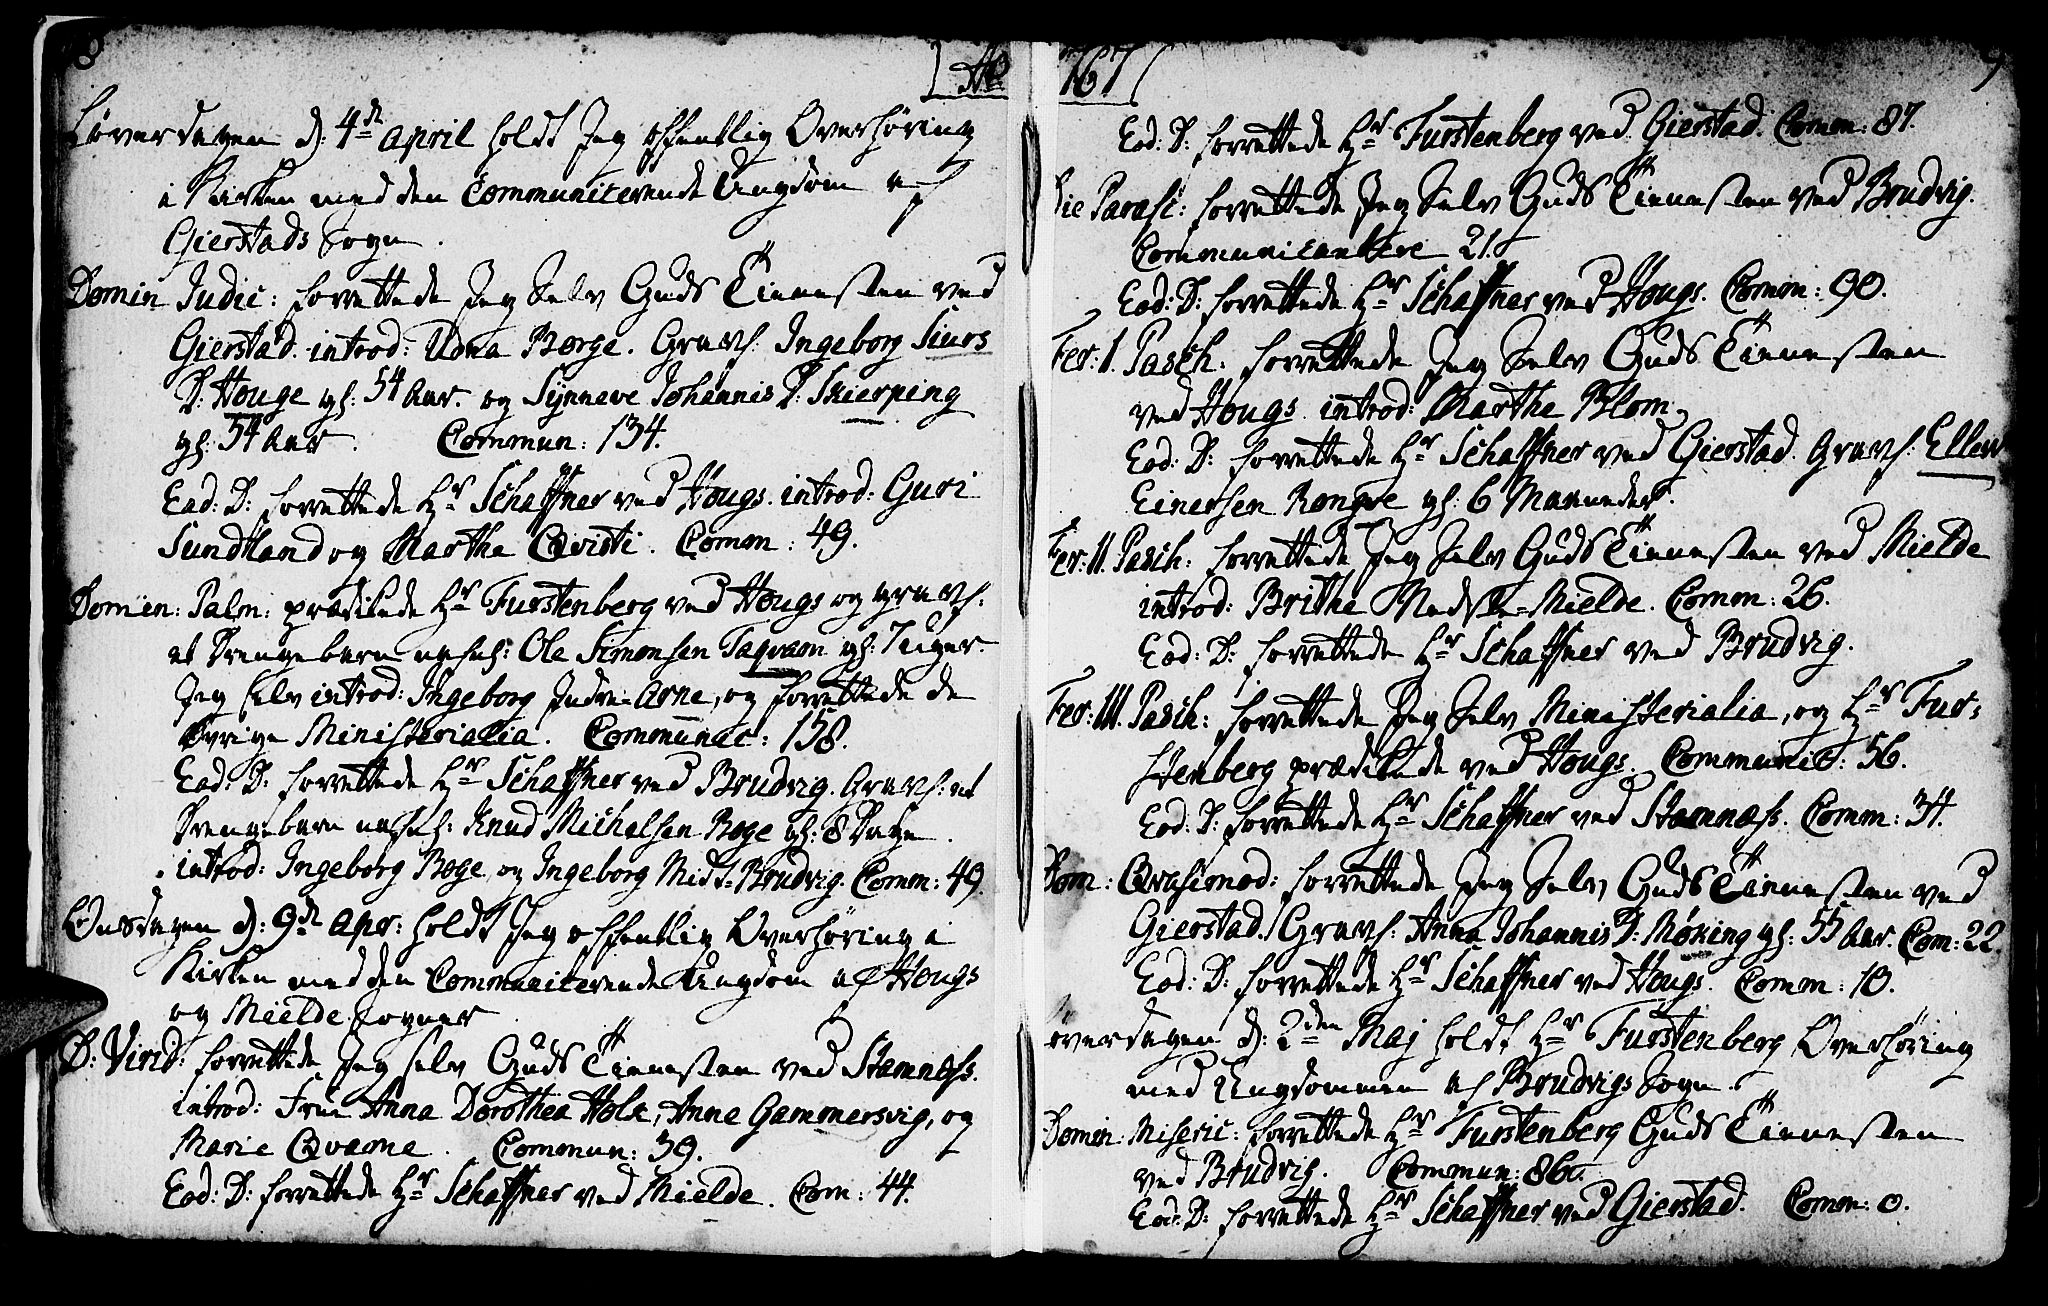 8
Ao 1767
9
Løverdagen d: 4de April holdt Jeg offentlig Overhøring
i Kirken med den Communicerende Ungdom af
Gierstads Sogn.
Domin Judic: forrettede Jeg Selv Guds Tienesten ved
Gierstad. introd: Udna Borge. Gravf: Ingeborg Siurs
D: Houge gl: 54 Aar. og Synneve Johannis D: Skierping
gl: 54 Aar. Commun: 134.
Eod: D: forrettede Hr Schaffner ved Hougs. introd: Guri
Sundtland og Marthe Qvisti. Comm: 49.
Domin: Palm: prædikede Hr Furstenberg ved Hougs og gravf:
et Drengebarn nafnl: Ole Simonsen Taqvam gl: 7 uger.
Jeg selv introd: Ingeborg Indre-Arne, og forrettede de
øvrige Ministerialia. Communic: 158.
Eod: D: forrettede Hr Schaffner ved Brudvig. Gravf: et
Drengebarn nafnl: Knud Michelsen Roge gl: 8 Dage.
introd: Ingeborg Roge, og Ingeborg Midt-Brudvig. Comm: 49.
Onsdagen d: 9de Apr: holdt Jeg offentlig Overhøring i
Kirken med den Communicerende Ungdom af Hougs
og Mielde Sogner.
D: Virid: forrettede Jeg selv Guds Tienesten ved Stamnæss.
introd: Frue Anna Dorothea Holk, Anne Gammersvig, og
Marie Qvamne. Commun: 39.
Eod: D: forrettede Hr Schaffner ved Mielde. Com: 44.
Eod: D: forrettede Hr Furstenberg ved Gierstad. Comm: 87.
Die Parasc: forrettede Jeg Selv Guds Tienesten ved Brudvig.
Communicantere 21.
Eod: D: forrettede Hr Schaffner ved Hougs. Comm: 90.
Fer: I. Pasch: forrettede Jeg Selv Guds Tienesten
ved Hougs. introd: Marthe Blom.
Eod: D: forrettede Hr Schaffner ved Gierstad. Gravf: Ellew
Einersen Rongve gl: 6 Maaneder.
Fer: II. Pasch: forrettede Jeg Selv Guds Tienesten ved Mielde
introd: Brithe Nedste-Mielde. Comm: 26.
Eod: D: forrettede Hr Schaffner ved Brudvig.
Fer: III. Pasch: forrettede Jeg Selv Ministerialia, og Hr Fur-
stenberg prædikede ved Hougs. Communic: 56.
Eod: D: forrettede Hr Schaffner ved Stamnæss. Comm: 34.
Dom: Qvasimod: forrettede Jeg Selv Guds Tienesten ved
Gierstad. Gravf: Anna Johannis D: Møking gl: 55 Aar. Com: 22.
Eod: D: forrettede Hr Schaffner ved Hougs. Comm: 10.
Løverdagen d: 2den Maj holdt Hr Furstenberg Overhøring
med Ungdommen af Brudvigs Sogn.
Domin: Miseric: forrettede Hr Furstenberg Guds Tienesten
ved Brudvig. Commun: 86.
Eod: D: forrettede Hr Schaffner ved Gierstad. Comm: 0.